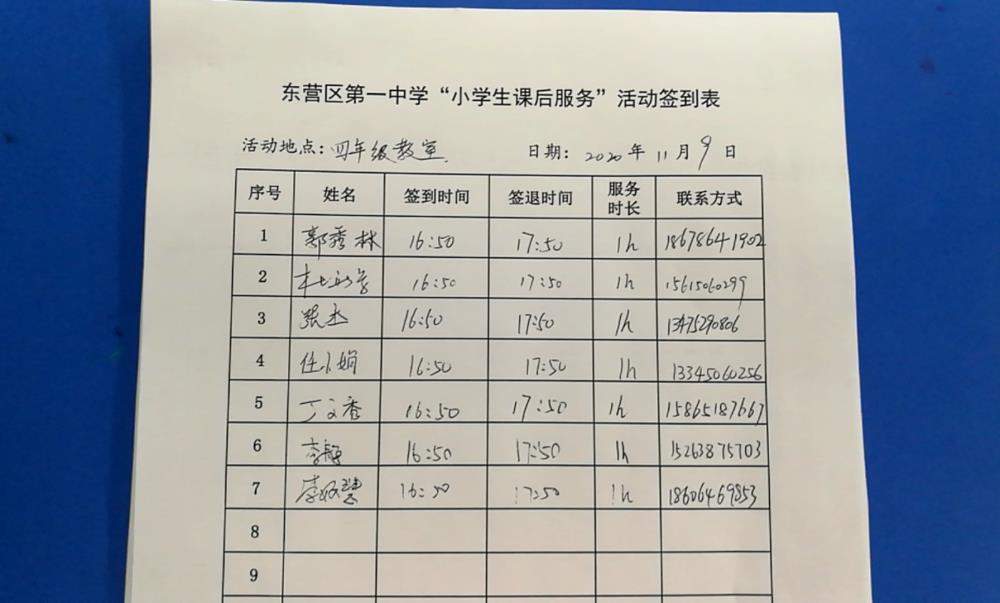 东营区第一中学“小学生课后服务”活动签到表
活动地点：四年级教室 日期：2020年11月9日
序号 姓名 签到时间 签退时间 服务时长 联系方式
1 郭秀林 16:50 17:50 1h 18678641902
2 16:50 17:50 1h 15615060299
3 16:50 17:50 1h 13475290806
4 任小娟 16:50 17:50 1h 13345060256
5 丁文香 16:50 17:50 1h 15865187667
6 李艳 16:50 17:50 1h 15263875703
7 16:50 17:50 1h 18606469853
8
9